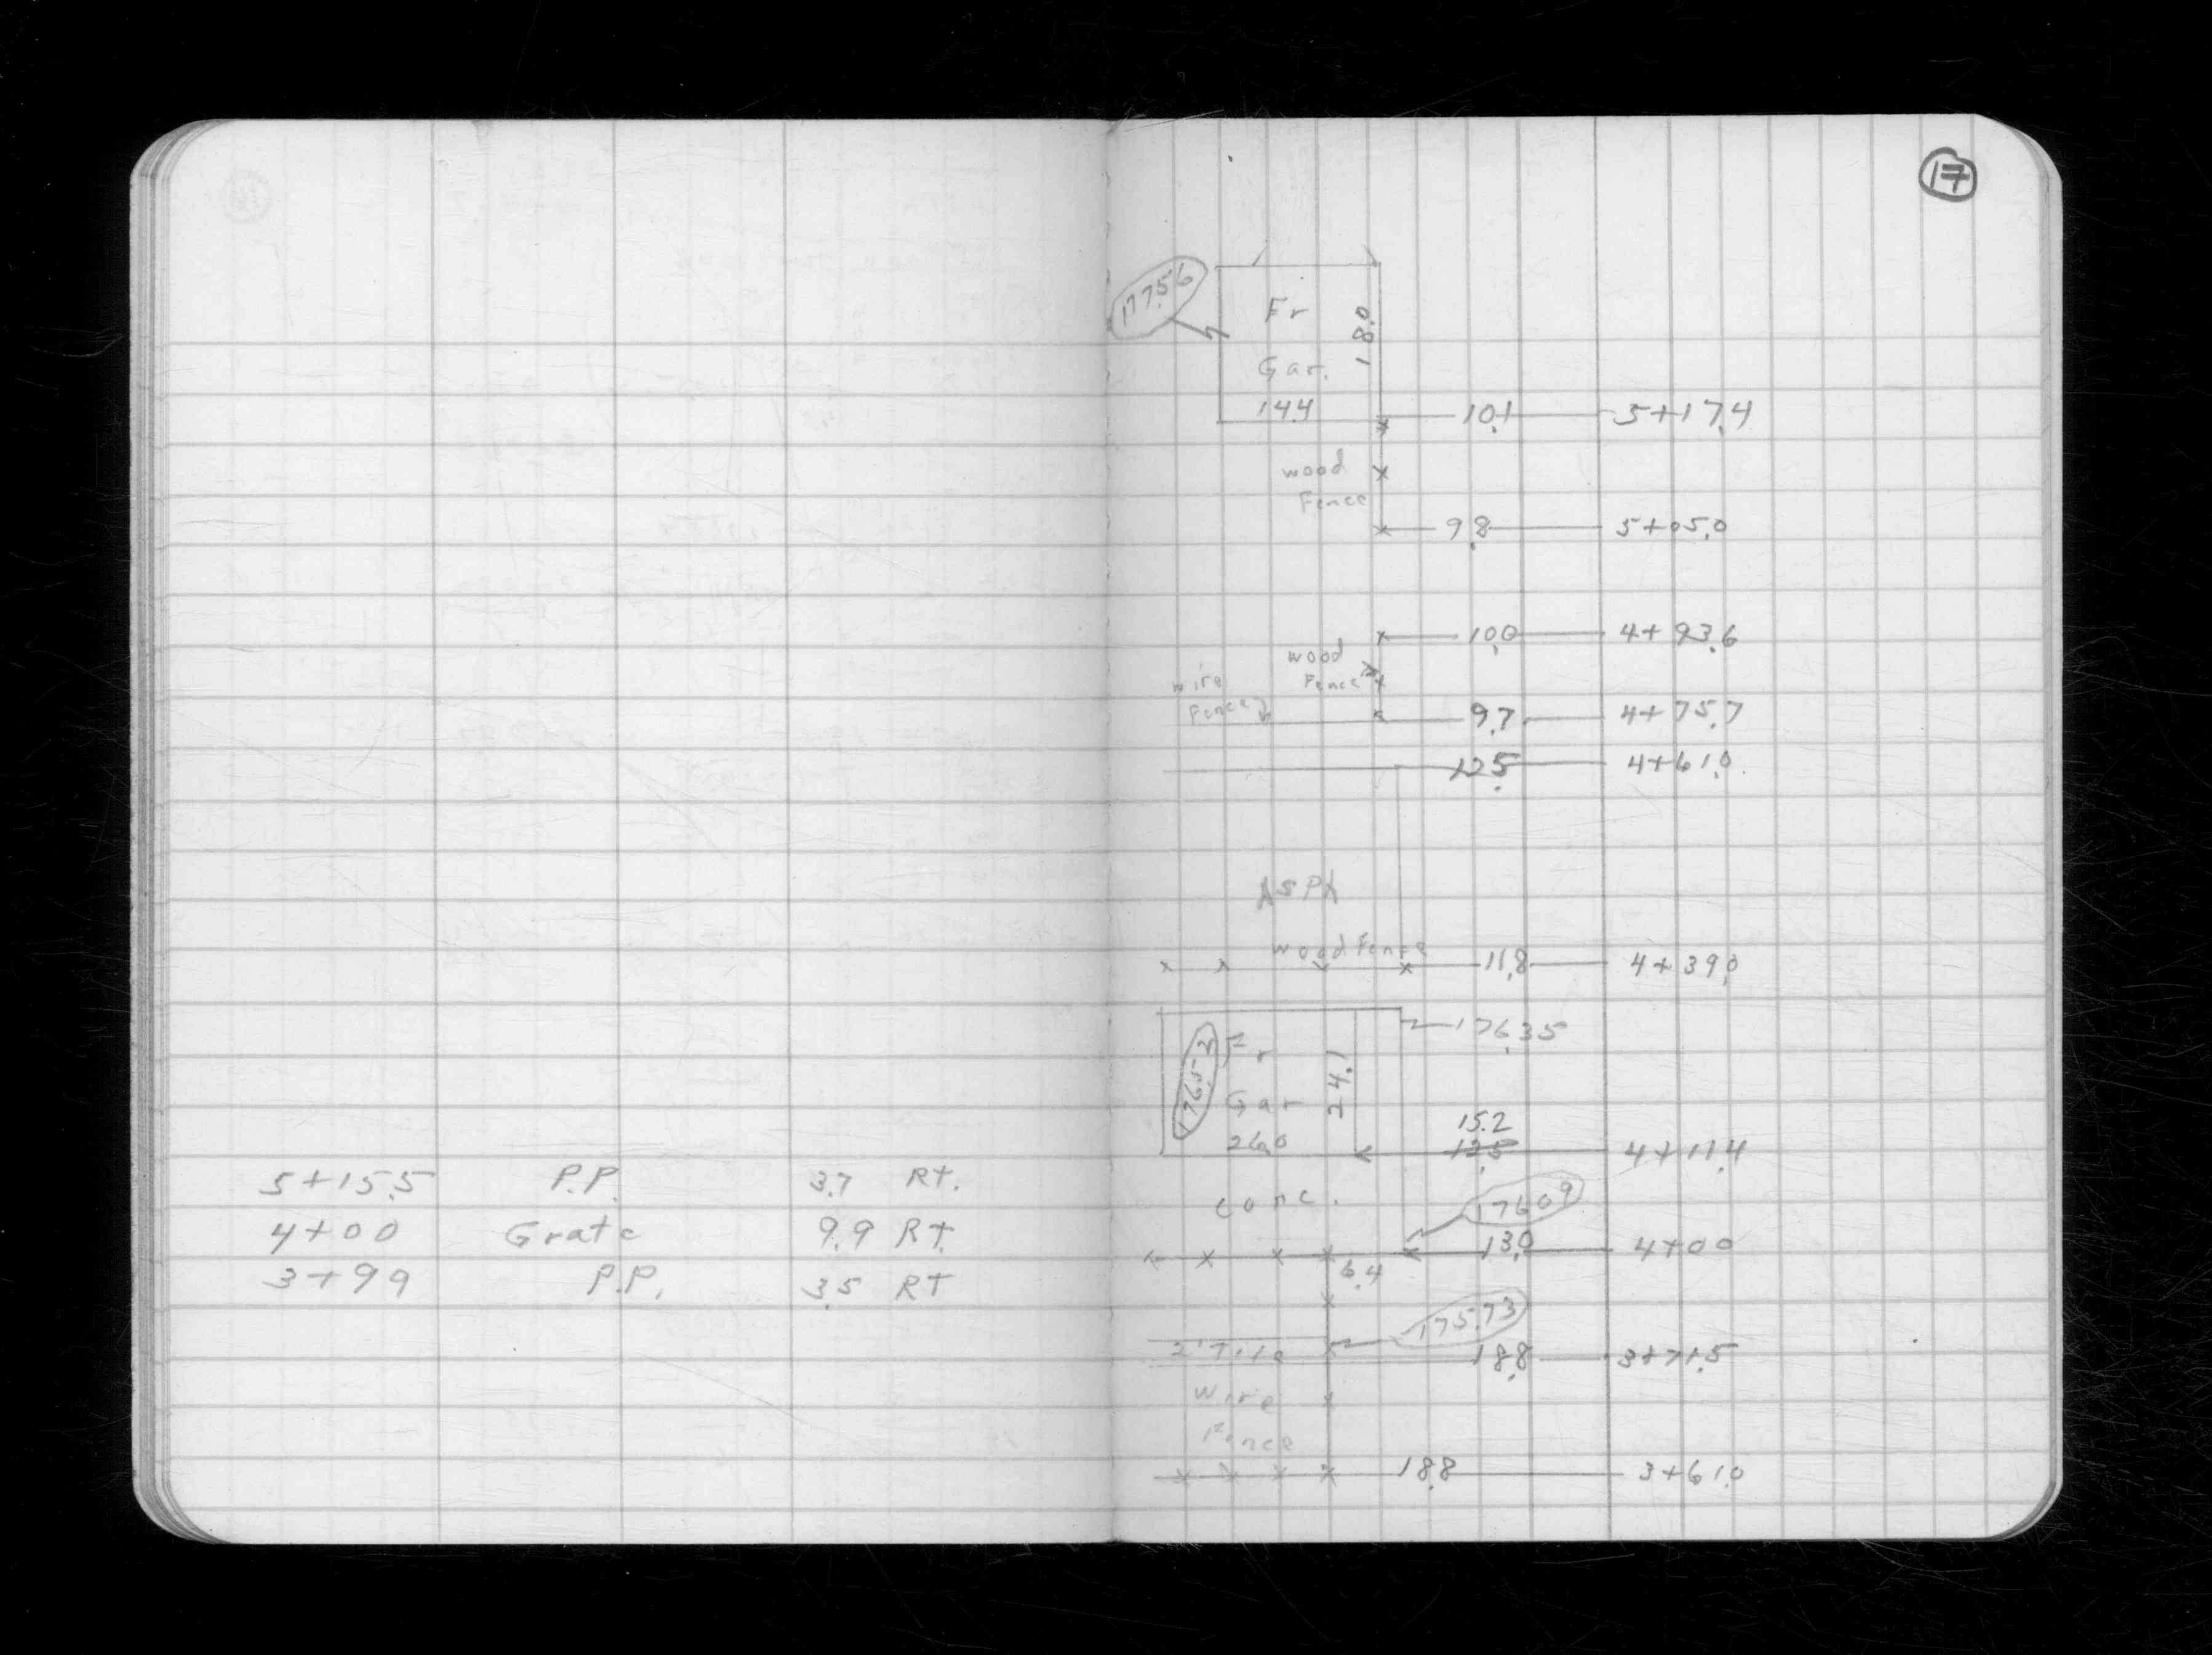 5+15.5 P.P. 3.7 Rt.
4+00 Grate 9.9 Rt
3+99 P.P. 3.5 Rt
17
177.56
Fr
Gar.
14.4
18.0
10.1 5+17.4
wood
Fence
9.8 5+05.0
10.0 4+93.6
wood
Fence
wire
Fence
9.7 4+75.7
12.5 4+61.0
ASPH
wood Fence
11.8 4+39.0
176.35
176.52
Fr
Gar
26.0
24.1
15.2
12.5 4+11.4
conc.
176.09
13.0 4+00
6.4
175.73
2' Tile
18.8 3+71.5
Wire
Fence
18.8 3+61.0